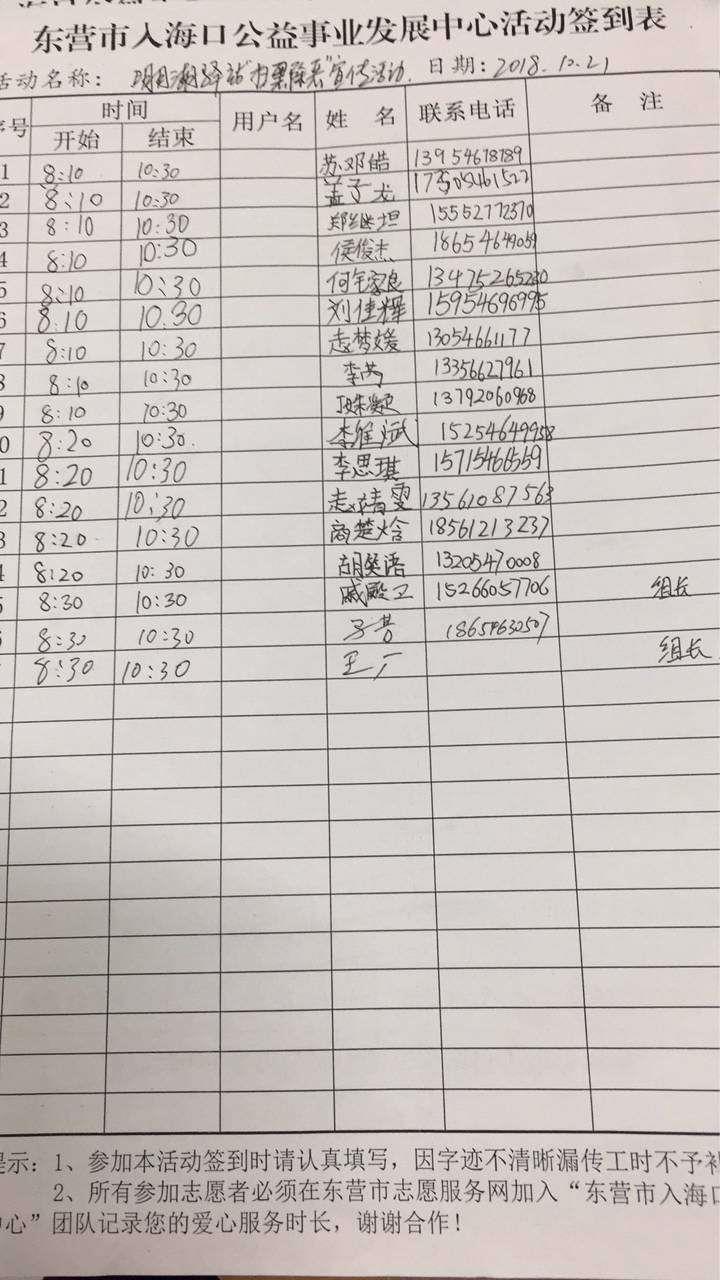 东营市入海口公益事业发展中心活动签到表
活动名称: 明月湖驿站"扫黑除恶"宣传活动. 日期: 2018.10.21
序号 时间 用户名 姓 名 联系电话 备 注
开始 结束
1 8:10 10:30 苏邓皓 13954678789
2 8:10 10:30 孟子尤
3 8:10 10:30 15552772370
4 8:10 10:30 侯俊杰 18654649059
5 8:10 10:30 13475265230
6 8:10 10.30 刘佳辉 15954696995
7 8:10 10:30 赵梦媛 13054661177
8 8:10 10:30 李芮 13356627961
9 8:10 10:30 13792060968
0 8:20 10:30. 李维斌 15254649958
1 8:20 10:30 李思琪 15715466559
2 8:20 10:30 赵靖雯 13561087563
3 8:20 10:30 商楚焓 18561213237
4 8:20 10:30 胡笑语 13205470008
5 8:30 10:30 戚殿卫 15266057706 组长
8:30 10:30 18654630507
8:30 10:30 王广 组长
提示: 1、参加本活动签到时请认真填写,因字迹不清晰漏传工时不予补
2、所有参加志愿者必须在东营市志愿服务网加入“东营市入海口
心”团队记录您的爱心服务时长,谢谢合作!